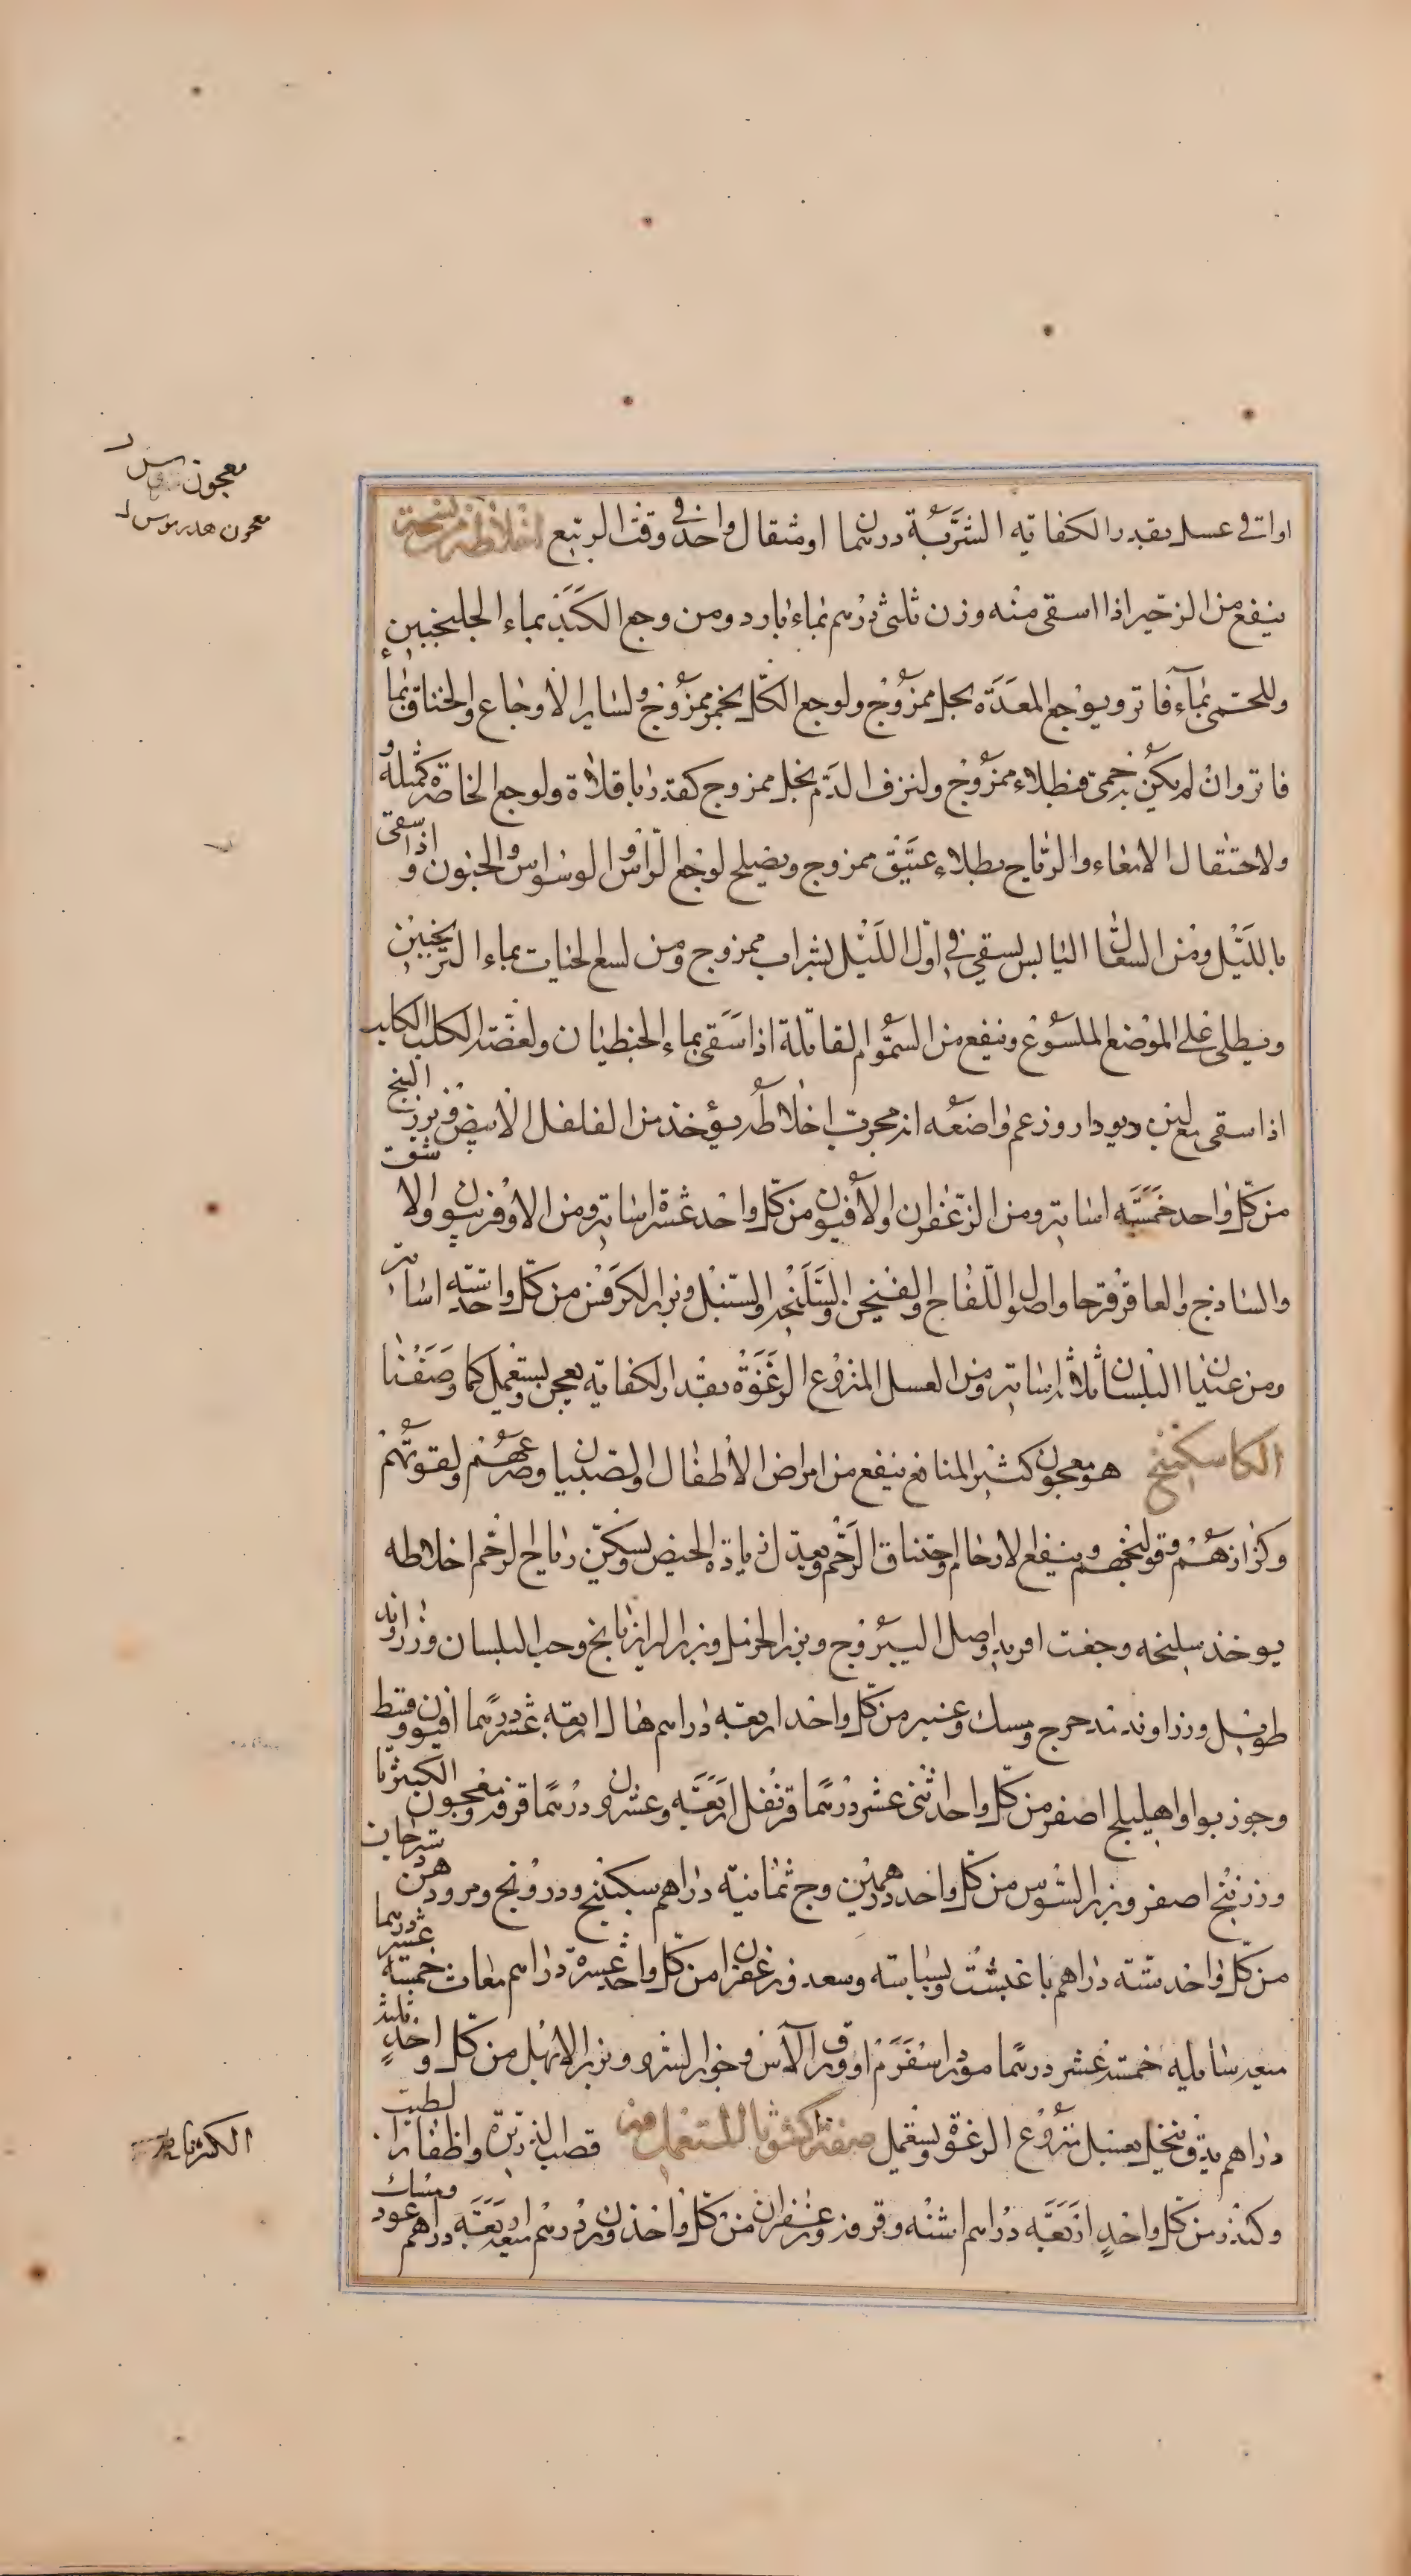 اواقى عسل بقدر الكفاية الشربة درهما او مثقال واحد فى وقت الربيع
ينفع من الزحير اذا اسقى منه وزن ثلثى درهم بماء بارد ومن وجع الكبد بماء الجلنجبين
وللحمى بماء فاتر ويوجع المعدة بخل ممزوج ولوجع الكلى بخمر ممزوج ولساير الاوجاع والخناق بماء
فاتر وان لم يكن به حمى فبطلاء ممزوج ولنزف الدم بخل ممزوج كقدر باقلاة ولوجع الخاصرة كمثله
ولاحتقال الامعاء والرياح بطلاء عتيق ممزوج ويصلح لوجع الرأس والوسواس والجنون اذا سقى
بالليل ومن السعال اليابس يسقى فى اول الليل بشراب ممزوج ومن لسع الحيات بماء الترنجبين
ويطلى على الموضع الملسوع وينفع من السموم القاتلة اذا سقى بماء الجنطيان ولعضة الكلب الكلب
اذا سقى مع لبن ديودار وزعم واضعه انه مجرب اخلاطه يؤخذ من الفلفل الابيض وبزر البنج
من كل واحد خمسة اساتير ومن الزعفران والافيون من كل واحد عشرة اساتير ومن الاوفربيون والاشق
والساذج والعاقرقرحا واصل اللفاح والسنبل وبزر الكرفس من كل واحد ستة اساتير
ومن عيدان البلسان ثلاثة اساتير ومن العسل المنزوع الرغوة بقدر الكفاية يعجن ويستعمل كما وصفنا
الكاسكبينج هو معجون كثير المنافع ينفع من امراض الاطفال والصبيان وصرعهم ولقوتهم
وكزازهم وقولنجهم وينفع الارحام واختناق الرحم ويعدل زيادة الحيض ويسكن رياح الرحم اخلاطه
يوخذ سليخه وجفت افريد واصل اليبروج وبزر الحرمل وبزر الرازيانج وحب البلسان وزراوند
طويل وزراوند مدحرج ومسك وعنبر من كل واحد اربعة دراهم هال اربعة عشر درهما افيون وقسط
وجوز بوا واهليلج اصفر من كل واحد اثنى عشر درهما قرنفل اربعة وعشرون درهما قرفه ومعجون الكبيرثا
وزرنيخ اصفر وبزر السوس من كل واحد درهمين وج ثمانية دراهم سكبينج ودرونج ومرود
من كل واحد ستة دراهم باغبشت وبسباسه وسعد وزعفران من كل واحد عشرة دراهم مغاث خمسة عشر درهما
ميعه سايله خمسة عشر درهما مورد اسفرم او ورق الآس وبزر الابهل من كل واحد ثلثة
دراهم يدق وينخل بعسل منزوع الرغوة ويستعمل صفة الكثوثا المستعمل قصب الذريرة واظفار الطيب
وكندر من كل واحد اربعة دراهم اشنه وزعفران من كل واحد وزن درهم ميعه اربعة دراهم عود ومسك
معجون
معجون هدرىوس
الكثرنا